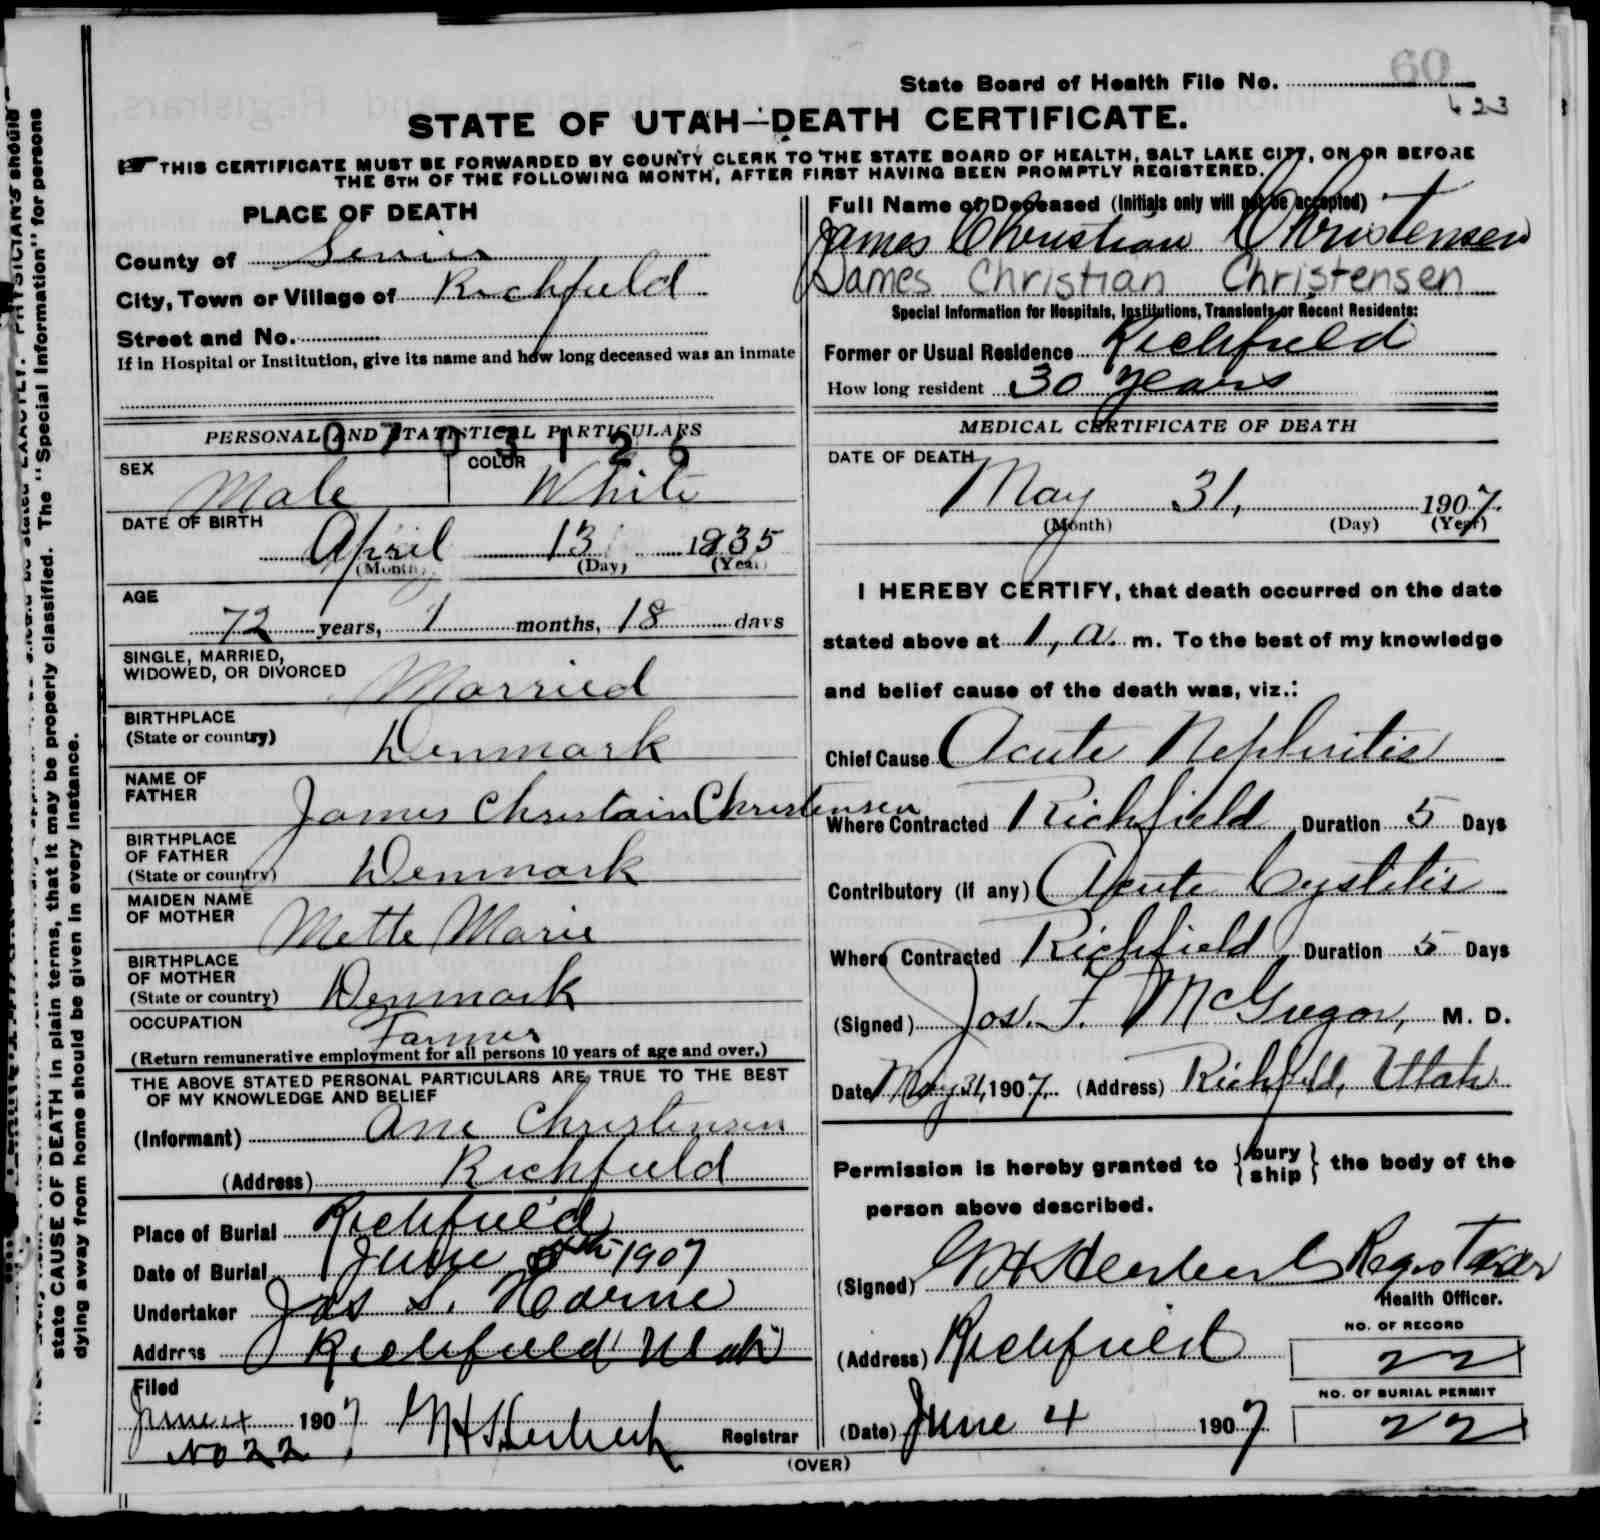 State Board of Health File No. 60
623
STATE OF UTAH—DEATH CERTIFICATE.
THIS CERTIFICATE MUST BE FORWARDED BY COUNTY CLERK TO THE STATE BOARD OF HEALTH, SALT LAKE CITY, ON OR BEFORE
THE 5TH OF THE FOLLOWING MONTH, AFTER FIRST HAVING BEEN PROMPTLY REGISTERED.
PLACE OF DEATH
County of Sevier
City, Town or Village of Richfield
Street and No.
If in Hospital or Institution, give its name and how long deceased was an inmate
Full Name of Deceased (Initials only will not be accepted)
James Christian Christensen
James Christian Christensen
Special Information for Hospitals, Institutions, Transients or Recent Residents:
Former or Usual Residence Richfield
How long resident 30 years
PERSONAL AND STATISTICAL PARTICULARS
0703126
SEX Male
COLOR White
DATE OF BIRTH
April 13 1835
(Month) (Day) (Year)
AGE
72 years, 1 months, 18 days
SINGLE, MARRIED,
WIDOWED, OR DIVORCED Married
BIRTHPLACE
(State or country) Denmark
NAME OF
FATHER James Christain Christensen
BIRTHPLACE
OF FATHER
(State or country) Denmark
MAIDEN NAME
OF MOTHER Mette Marie
BIRTHPLACE
OF MOTHER
(State or country) Denmark
OCCUPATION Farmer
(Return remunerative employment for all persons 10 years of age and over.)
THE ABOVE STATED PERSONAL PARTICULARS ARE TRUE TO THE BEST
OF MY KNOWLEDGE AND BELIEF
(Informant) Ane Christensen
(Address) Richfield
Place of Burial Richfield
Date of Burial June 1907
Undertaker Jas S. Horne
Address Richfield Utah
Filed
June 4 1907 Registrar
No 22
MEDICAL CERTIFICATE OF DEATH
DATE OF DEATH
May 31, 1907.
(Month) (Day) (Year)
I HEREBY CERTIFY, that death occurred on the date
stated above at 1, a. m. To the best of my knowledge
and belief cause of the death was, viz.:
Chief Cause Acute Nephritis
Where Contracted Richfield Duration 5 Days
Contributory (if any) Acute Cystitis
Where Contracted Richfield, Duration 5 Days
(Signed) Jos. F. McGregor, M. D.
Date May 31, 1907. (Address) Richfield, Utah.
Permission is hereby granted to {bury ship} the body of the
person above described.
(Signed) Registrar
Health Officer.
(Address) Richfield
NO. OF RECORD
22
NO. OF BURIAL PERMIT
22
(Date) June 4 1907
(OVER)
state CAUSE OF DEATH in plain terms, that it may be properly classified. The "Special Information" for persons
dying away from home should be given in every instance.